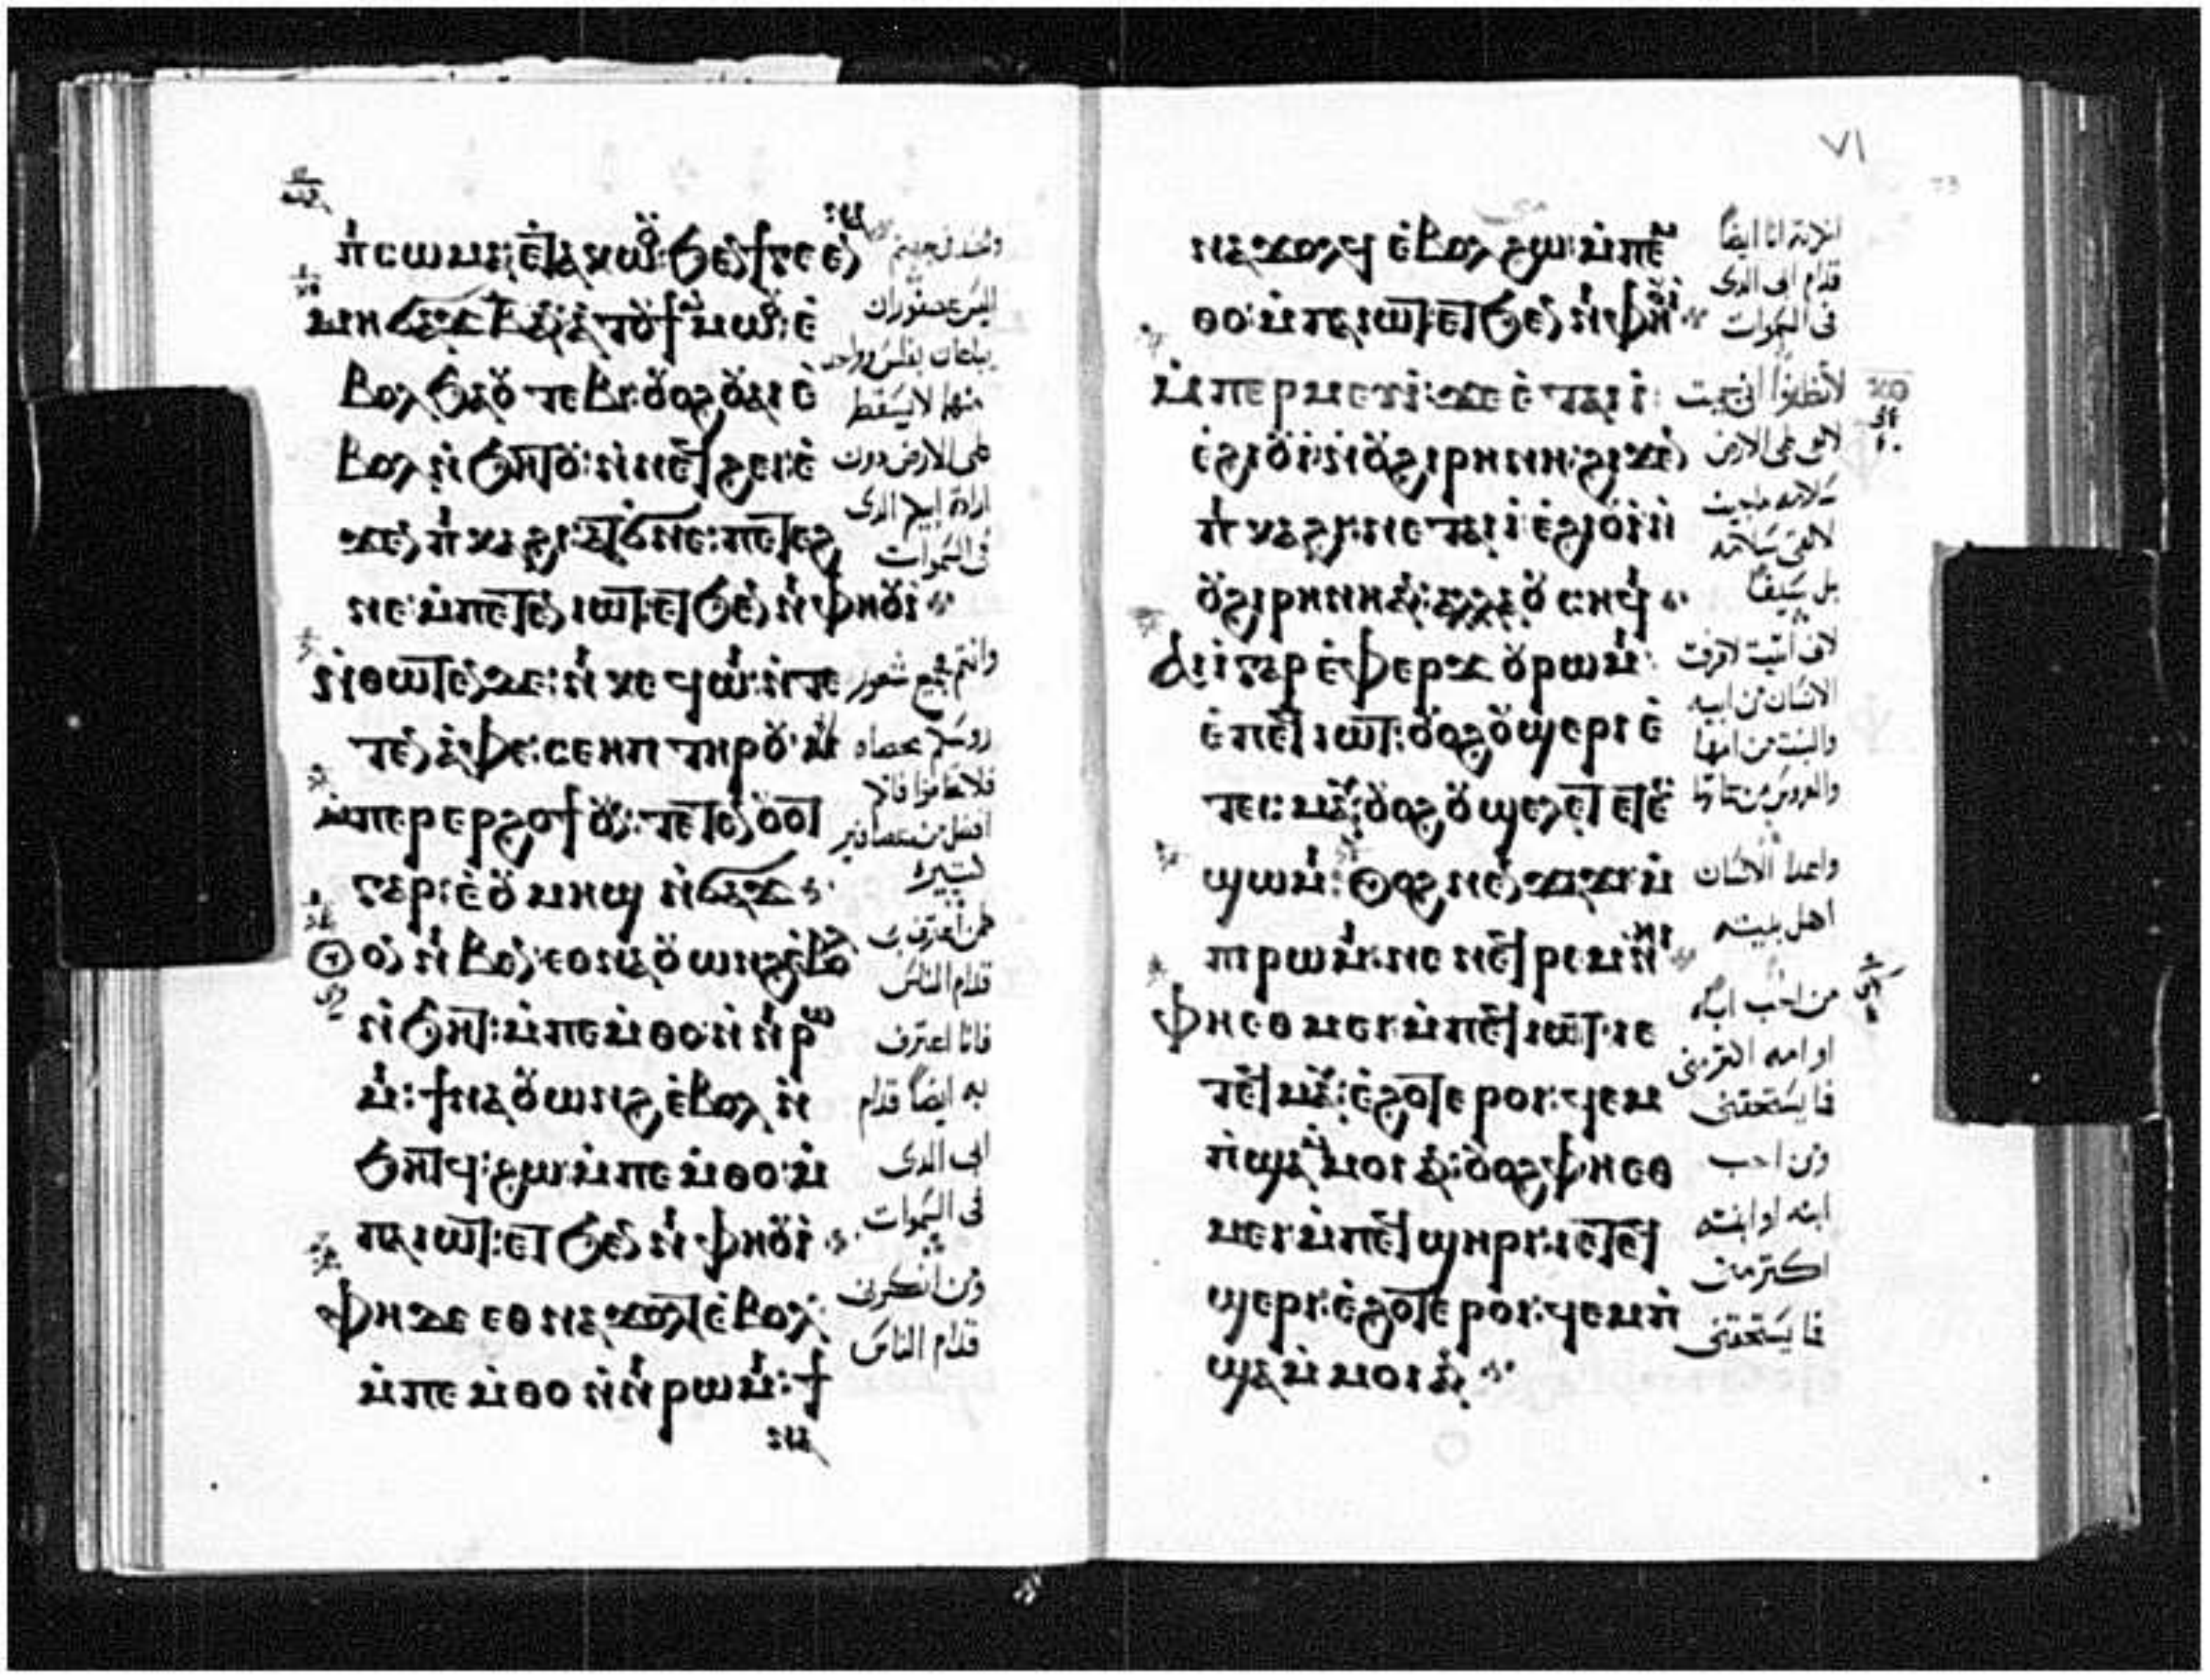 ⲡⲓⲥⲱⲙⲁ: ⲉ̀ⲧⲁⲕⲱⲟⲩ: ϧⲉⲛ ϯⲅⲉⲉⲛⲛⲁ:
ⲙⲏ ϭⲁϫ ⲃ̅ ⲁⲛ ⲉ̀ⲧⲟⲩϯ ⲙ̀ⲙⲱⲟⲩ: ⲉ̀
ⲃⲟⲗ ϧⲁ ⲟⲩⲧⲉⲃⲓ: ⲟⲩⲟϩ ⲟⲩⲁⲓ ⲉ̀
ⲃⲟⲗ ⲛ̀ϧⲏⲧⲟⲩ: ⲛ̀ⲛⲉϥϩⲉⲓ: ⲉ̀
ϫⲉⲛ ⲡⲓⲕⲁϩⲓ: ⲁϭⲛⲉ: ⲡⲉⲧⲉϩ
ⲛⲉ: ⲙ̀ⲡⲉⲧⲉⲛⲓⲱⲧ: ⲉⲧϧⲉⲛ ⲛⲓⲫⲏⲟⲩⲓ̀
ⲛ̀ⲑⲱⲧⲉⲛ ⲇⲉ: ⲛⲓⲕⲉϥⲱⲓ: ⲛ̀ⲧⲉ
ⲧⲉⲛⲁ̀ⲫⲉ: ⲥⲉⲏⲡ ⲧⲏⲣⲟⲩ:
ⲙ̀ⲡⲉⲣⲉⲣϩⲟϯ ⲟⲩⲛ: ⲧⲉⲧⲉⲛⲟⲩⲟⲧ
ⲅⲁⲣ: ⲉ̀ⲟⲩⲙⲏϣ ⲛ̀ϭⲁϫ
ⲟⲩⲟⲛ ⲛⲓⲃⲉⲛ: ⲉⲑⲛⲁⲟⲩⲱⲛϩ ⲉ̀ⲃⲟⲗ
ⲛ̀ϧⲏⲧ: ⲙ̀ⲡⲉⲙ̀ⲑⲟ: ⲛ̀ⲛⲓⲣⲱ
ⲙⲓ: ϯⲛⲁⲟⲩⲱⲛϩ ⲉ̀ⲃⲟⲗ ⲛ̀
ϧⲏⲧϥ: ϩⲱ: ⲙ̀ⲡⲉⲙ̀ⲑⲟ: ⲙ̀
ⲡⲁⲓⲱⲧ: ⲉⲧϧⲉⲛ ⲛⲓⲫⲏⲟⲩⲓ̀
ⲫⲏ ⲇⲉ ⲉⲑⲛⲁϫⲟⲗⲧ ⲉ̀ⲃⲟⲗ:
ⲙ̀ⲡⲉⲙ̀ⲑⲟ ⲛ̀ⲛⲓⲣⲱⲙⲓ: ϯ
ⲛⲁ
اليس عصفوران
يباعان بفلس وواحد
منهما لا يسقط
على الارض دون
ارادة ابيكم الدى
فى السموات
وانتم جميع شعور
روسكم محصاه
فلا تخافوا فانكم
افضل من عصافير
كتيره
فمن اعترف بى
قدام الناس
فانا اعترف
به ايضا قدام
ابى الدى
فى السموات
ومن انكرنى
قدام الناس
٧١
ⲛⲁϫⲟⲗϥ ⲉ̀ⲃⲟⲗ ϩⲱ: ⲙ̀ⲡⲉⲙ̀
ⲑⲟ: ⲙ̀ⲡⲁⲓⲱⲧ: ⲉⲧϧⲉⲛ ⲛⲓⲫⲏⲟⲩⲓ̀
ⲙ̀ⲡⲉⲣⲙⲉⲩⲓ: ϫⲉ ⲉ̀ⲧⲁⲓⲓ̀:
ⲉ̀ϩⲓⲟⲩⲓ̀: ⲛ̀ⲟⲩϩⲓⲣⲏⲛⲏ: ϩⲓϫⲉⲛ
ⲡⲓⲕⲁϩⲓ: ⲛⲉⲧⲁⲓⲓ̀ ⲉ̀ϩⲓⲟⲩⲓ̀ ⲛ̀
ⲟⲩϩⲓⲣⲏⲛⲏ ⲁⲛ: ⲁⲗⲗⲁ ⲟⲩⲥⲏϥⲓ
ⲁⲓⲓ̀ ⲅⲁⲣ ⲉ̀ⲫⲉⲣϫ ⲟⲩⲣⲱⲙⲓ:
ⲉ̀ⲡⲉϥⲓⲱⲧ: ⲟⲩⲟϩ ⲟⲩϣⲉⲣⲓ ⲉ̀
ⲧⲉⲥⲙⲁⲩ: ⲟⲩⲟϩ ⲟⲩϣⲉⲗⲉⲧ ⲉ̀ⲧⲉⲥ
ϣⲱⲙⲓ: ⲟⲩⲟϩ ⲛⲉⲛϫⲁϫⲓ ⲙ̀
ⲡⲓⲣⲱⲙⲓ: ⲛⲉ ⲛⲉϥⲣⲉⲙⲛ̀ⲏⲓ
ⲫⲏ ⲉⲑⲙⲉⲓ ⲙ̀ⲡⲉϥⲓⲱⲧ: ⲓⲉ
ⲧⲉϥⲙⲁⲩ: ⲉ̀ϩⲟⲧⲉⲣⲟⲓ: ϥⲉⲙ
ⲡ̀ϣⲁ ⲙ̀ⲙⲟⲓ ⲁⲛ: ⲟⲩⲟϩ ⲫⲏ ⲉⲑ
ⲙⲉⲓ ⲙ̀ⲡⲉϥϣⲏⲣⲓ: ⲓⲉ ⲧⲉϥ
ϣⲉⲣⲓ: ⲉ̀ϩⲟⲧⲉⲣⲟⲓ: ϥⲉⲙⲡ̀
ϣⲁ ⲙ̀ⲙⲟⲓ ⲁⲛ
انكرته انا ايضا
قدام ابى الدى
فى السموات
لا تظنوا انى جيت
لالقى على الارض
سلامه ما جيت
لالقى سلامه
بل سيفا
لانى اتيت لافرق
الانسان من ابيه
والبنت من امها
والعروس من حماتها
واعدا الانسان
اهل بيته
من احب اباه
او امه اكتر منى
فما يستحقنى
ومن احب
ابنه او ابنته
اكتر منى
فما يستحقنى